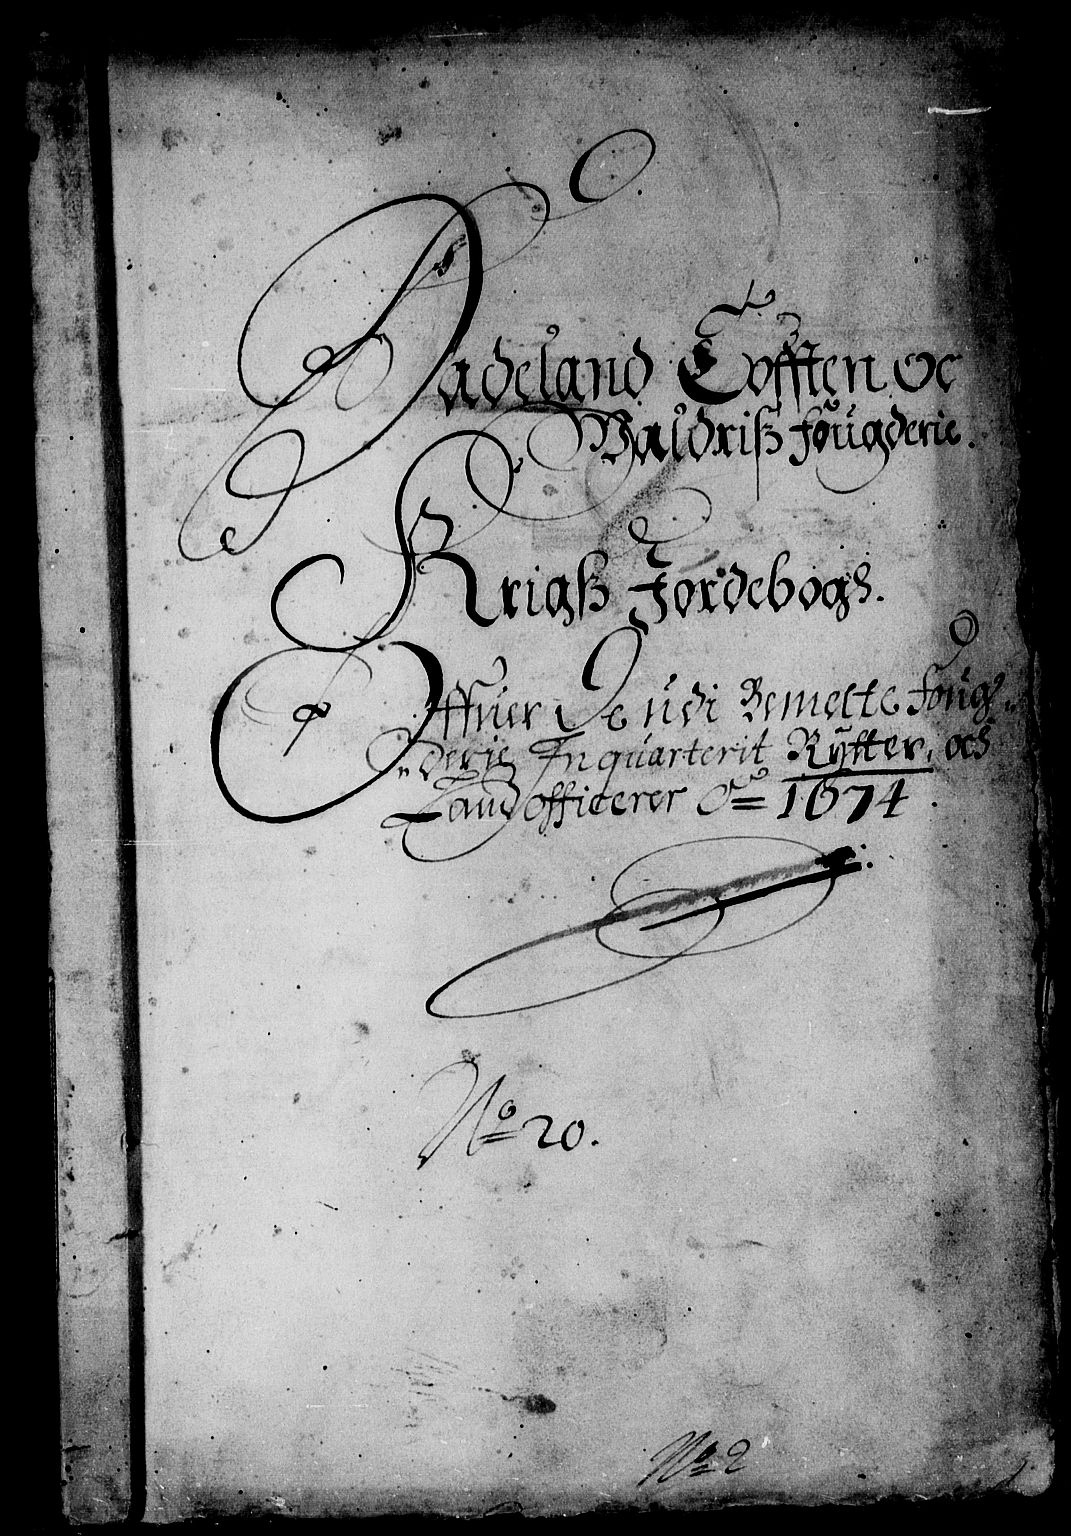 Hadeland Tofften oc
Waldriß fougderie.
Krigß Jordebogs.
Offuer De udi Bemelte foug¬
derie Inquarterit Rÿtter, och
Landofficerer Ao 1674.
No 20.
No 2